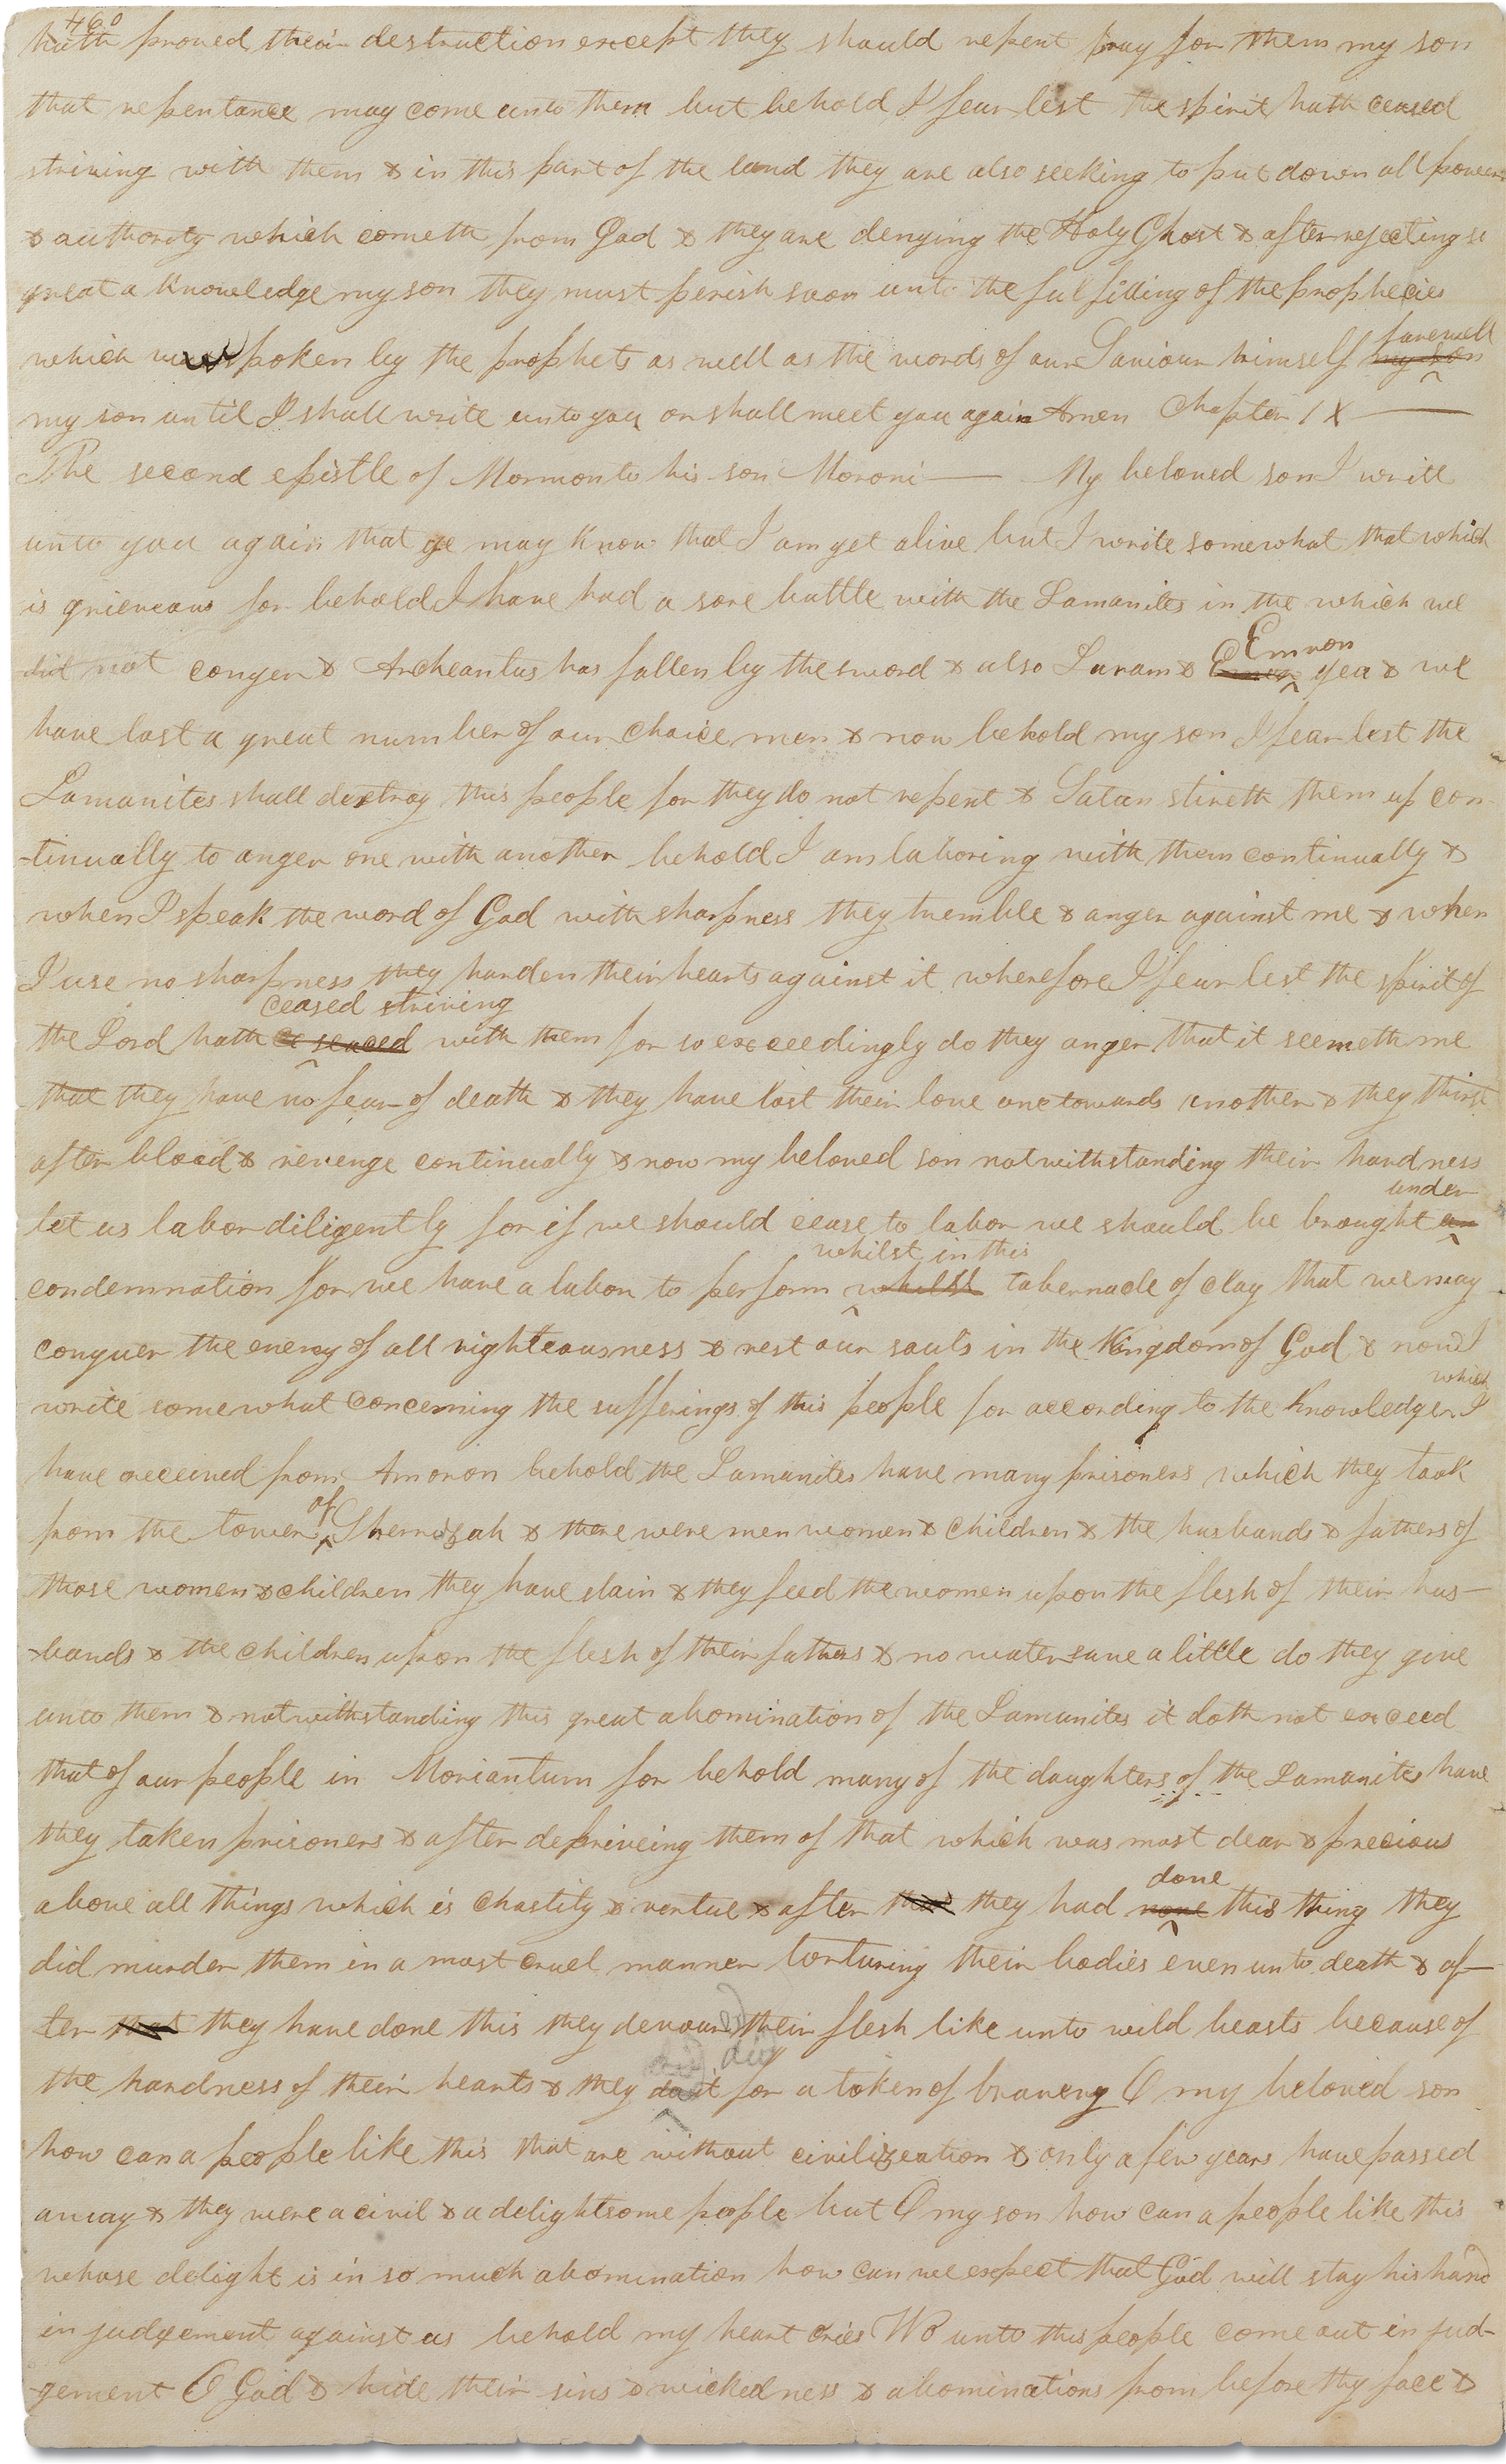 460
hath proved their destruction except they should repent pray for them my son
that repentance may come unto them but behold I fear lest the spirit hath ceased
striving with them & in this part of the land they are also seeking to put down all power
& authority which cometh from God & they are denying the Holy Ghost & after rejecting so
great a knowledge my son they must perish soon unto the fulfilling of the prophecies
which was spoken by the prophets as well as the words of our Saviour himself my son
farewell
my son until I shall write unto you or shall meet you again Amen Chapter IX —
The second epistle of Mormon to his son Moroni — My beloved son I write
unto you again that ye may know that I am yet alive but I write somewhat that which
is grieveous for behold I have had a sore battle with the Lamanites in the which we
did not conquer & Archeantus has fallen by the sword & also Luram & yea & we
Emron
have lost a great number of our choice men & now behold my son I fear lest the
Lamanites shall destroy this people for they do not repent & Satan stireth them up con-
-tinually to anger one with another behold I am laboring with them continually &
when I speak the word of God with sharpness they tremble & anger against me & when
I use no sharpness they harden their hearts against it wherefore I fear lest the spirit of
ceased striving
the Lord hath with them for so exceedingly do they anger that it seemeth me
that they have no fear of death & they have lost their love one towards another & they thirst
after blood & revenge continually & now my beloved son notwithstanding their hardness
under
let us labor diligently for if we should cease to labor we should be brought an
whilst in this
condemnation for we have a labor to perform whilst tabernacle of clay that we may
conquer the enemy of all righteousness & rest our souls in the Kingdom of God & now I
which
write somewhat concerning the sufferings of this people for according to the knowledge I
have received from Amoron behold the Lamanites have many prisoners which they took
of
from the tower Sherrizah & there were men women & children & the husbands & fathers of
those women & children they have slain & they feed the women upon the flesh of their hus—
-bands & the children upon the flesh of their fathers & no water save a little do they give
unto them & notwithstanding this great abomination of the Lamanites it doth not exceed
that of our people in Moriantum for behold many of the daughters of the Lamanites have
they taken prisoners & after depriveing them of that which was most dear & precious
above all things which is chastity & vertue & after they had none this thing they
done
did murder them in a most cruel manner torturing their bodies even unto death & af—
ter that they have done this they devour their flesh like unto wild beasts because of
ed
did
the hardness of their hearts & they do it for a token of bravery O my beloved son
how can a people like this that are without civilizeation & only a few years have passed
away & they were a civil & a delightsome people but O my son how can a people like this
whose delight is in so much abomination how can we expect that God will stay his hand
in judgement against us behold my heart cries Wo unto this people come out in jud-
-gement O God & hide their sins & wickedness & abominations from before thy face &